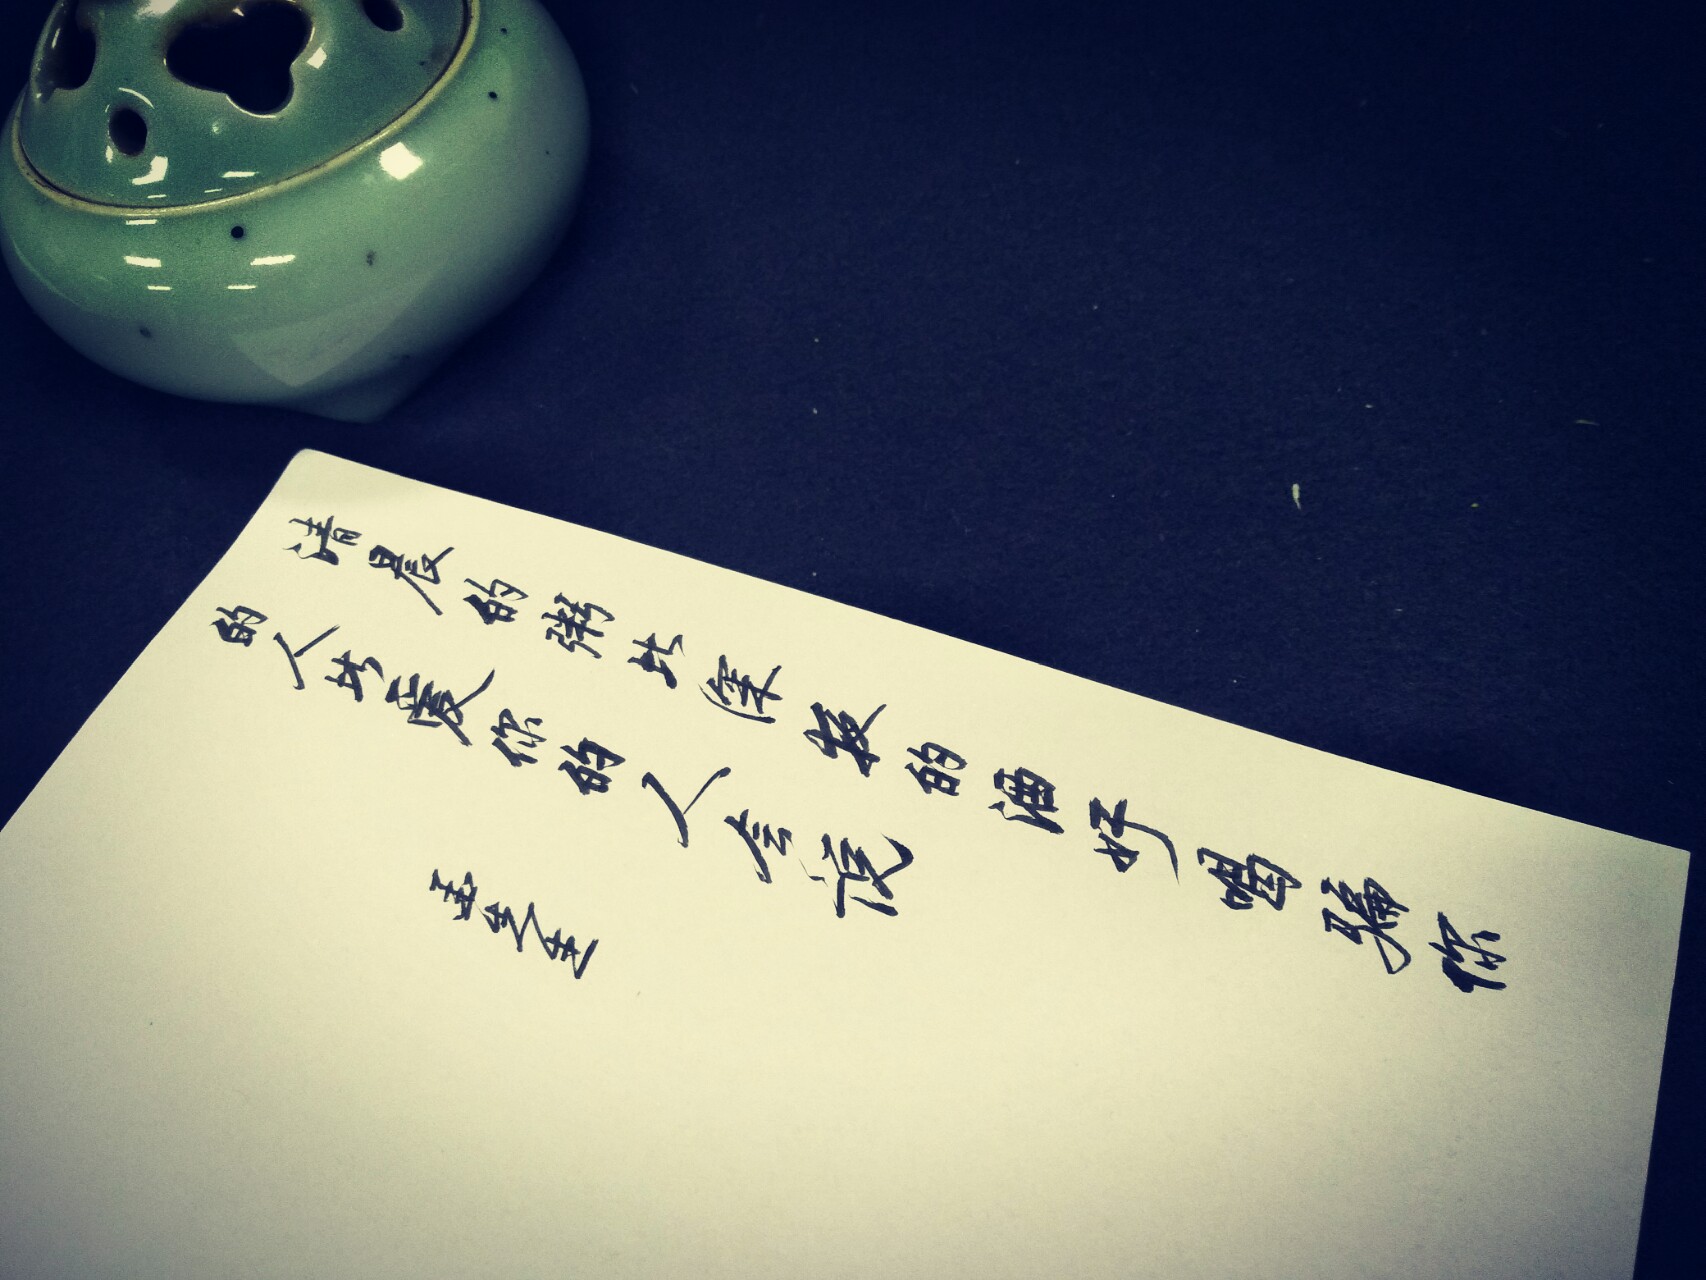 清晨的粥比深夜的酒好喝骗你
的人比爱你的人会说